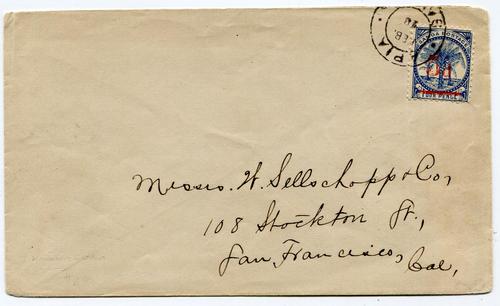 APIA
FEB.
SAMOA POSTAGE
5d
FOUR PENCE
Messrs. W. Sellschopp & Co,
108 Stockton St.,
San Francisco,
Cal,